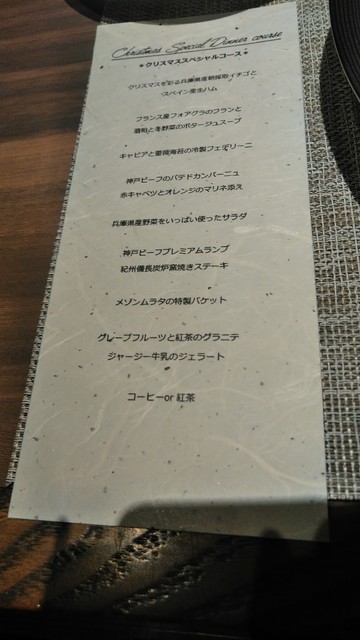 Christmas Special Dinner course
＊クリスマススペシャルコース＊
クリスマスを彩る兵庫県産朝採取イチゴと
スペイン産生ハム
フランス産フォアグラのフランと
冬野菜のポタージュスープ
キャビアと海苔の冷製フェデリーニ
神戸ビーフのパテドカンパーニュ
赤キャベツとオレンジのマリネ添え
兵庫県産野菜をいっぱい使ったサラダ
神戸ビーフプレミアムランプ
紀州備長炭炉窯焼きステーキ
メゾンムラタの特製バケット
グレープフルーツと紅茶のグラニテ
ジャージー牛乳のジェラート
コーヒーor 紅茶